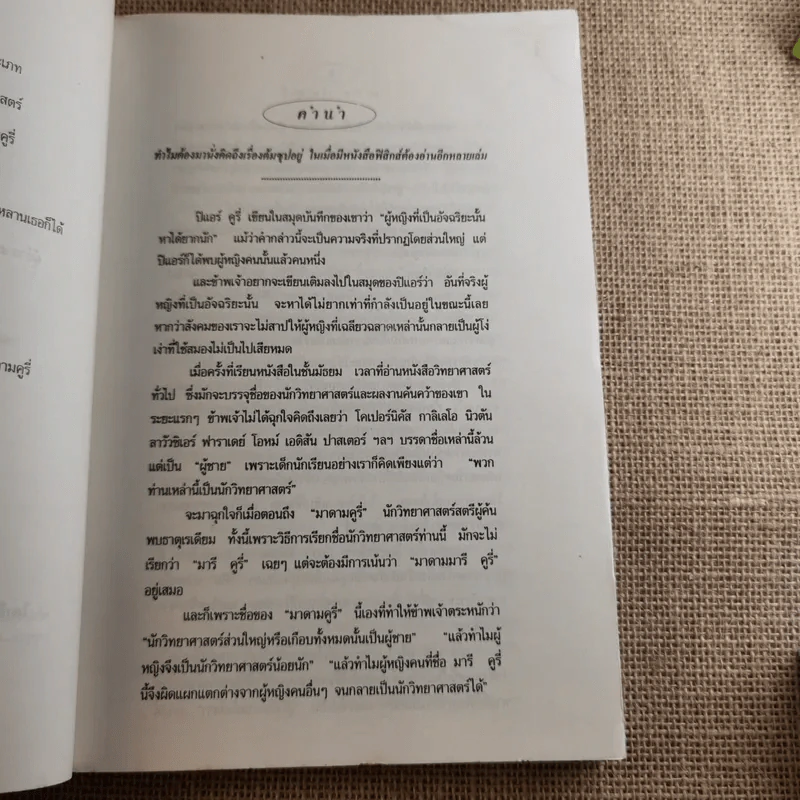 ะเภท
สตร์
คูรี่
หลานเธอก็ได้
ามคูรี่
คำนำ
ทำไมต้องมานั่งคิดถึงเรื่องต้มซุปอยู่ ในเมื่อมีหนังสือฟิสิกส์ต้องอ่านอีกหลายเล่ม
ปิแอร์ คูรี่ เขียนในสมุดบันทึกของเขาว่า "ผู้หญิงที่เป็นอัจฉริยะนั้น
หาได้ยากนัก" แม้ว่าคำกล่าวนี้จะเป็นความจริงที่ปรากฏโดยส่วนใหญ่ แต่
ปิแอร์ก็ได้พบผู้หญิงคนนั้นแล้วคนหนึ่ง
และข้าพเจ้าอยากจะเขียนเติมลงไปในสมุดของปิแอร์ว่า อันที่จริงผู้
หญิงที่เป็นอัจฉริยะนั้น จะหาได้ไม่ยากเท่าที่กำลังเป็นอยู่ในขณะนี้เลย
หากว่าสังคมของเราจะไม่สาปให้ผู้หญิงที่เฉลียวฉลาดเหล่านั้นกลายเป็นผู้โง่
เง่าที่ใช้สมองไม่เป็นไปเสียหมด
เมื่อครั้งที่เรียนหนังสือในชั้นมัธยม เวลาที่อ่านหนังสือวิทยาศาสตร์
ทั่วไป ซึ่งมักจะบรรจุชื่อของนักวิทยาศาสตร์และผลงานค้นคว้าของเขา ใน
ระยะแรกๆ ข้าพเจ้าไม่ได้ฉุกใจคิดถึงเลยว่า โคเปอร์นิคัส กาลิเลโอ นิวตัน
ลาวัวซิเอร์ ฟาราเดย์ โอห์ม เอดิสัน ปาสเตอร์ ฯลฯ บรรดาชื่อเหล่านี้ล้วน
แต่เป็น "ผู้ชาย" เพราะเด็กนักเรียนอย่างเราก็คิดเพียงแต่ว่า "พวก
ท่านเหล่านี้เป็นนักวิทยาศาสตร์"
จะมาฉุกใจก็เมื่อตอนถึง "มาดามคูรี่" นักวิทยาศาสตร์สตรีผู้ค้น
พบธาตุเรเดียม ทั้งนี้เพราะวิธีการเรียกชื่อนักวิทยาศาสตร์ท่านนี้ มักจะไม่
เรียกว่า "มารี คูรี่" เฉยๆ แต่จะต้องมีการเน้นว่า "มาดามมารี คูรี่"
อยู่เสมอ
และก็เพราะชื่อของ "มาดามคูรี่" นี้เองที่ทำให้ข้าพเจ้าตระหนักว่า
"นักวิทยาศาสตร์ส่วนใหญ่หรือเกือบทั้งหมดนั้นเป็นผู้ชาย" "แล้วทำไมผู้
หญิงจึงเป็นนักวิทยาศาสตร์น้อยนัก" "แล้วทำไมผู้หญิงคนที่ชื่อ มารี คูรี่
นี้จึงผิดแผกแตกต่างจากผู้หญิงคนอื่นๆ จนกลายเป็นนักวิทยาศาสตร์ได้"